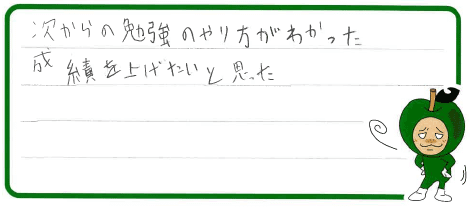 次からの勉強のやり方がわかった
成績を上げたいと思った